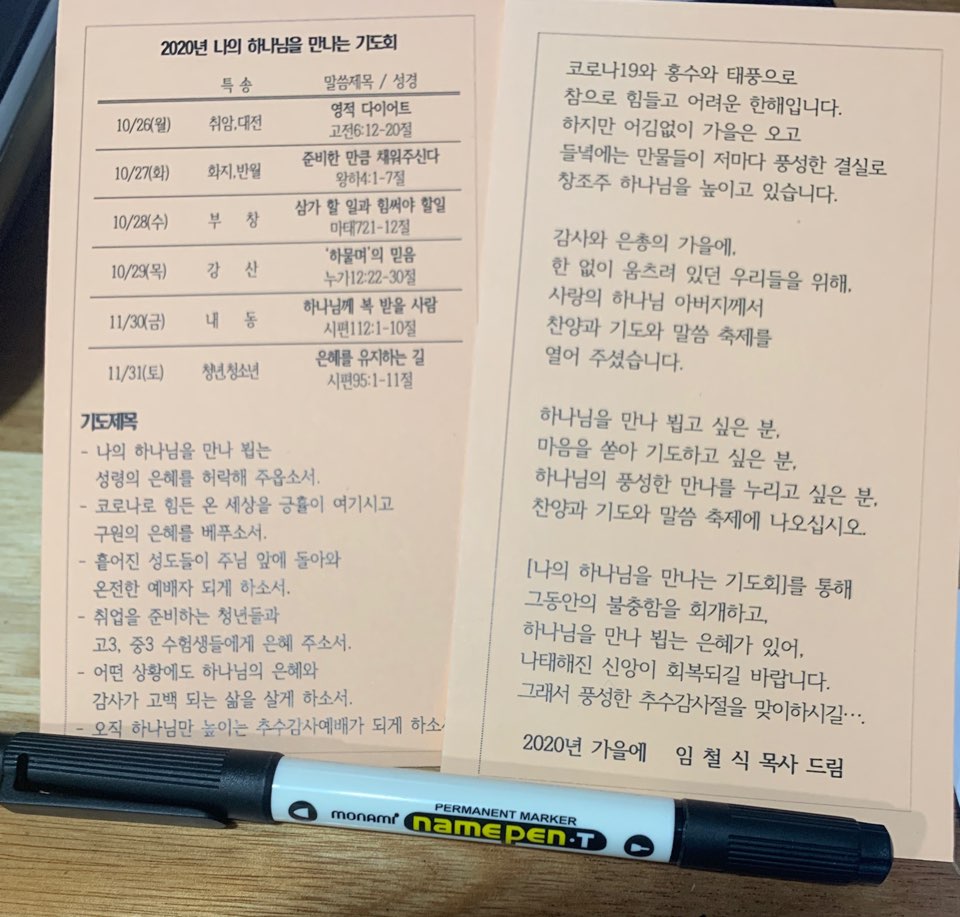 2020년 나의 하나님을 만나는 기도회
특 송 말씀제목 / 성경
10/26(월) 취암,대전 영적 다이어트
고전6:12-20절
10/27(화) 화지,반월 준비한 만큼 채워주신다
왕하4:1-7절
10/28(수) 부 창 삼가 할 일과 힘써야 할일
마태721-12절
10/29(목) 강 산 '하물며'의 믿음
누가12:22-30절
11/30(금) 내 동 하나님께 복 받을 사람
시편112:1-10절
11/31(토) 청년,청소년 은혜를 유지하는 길
시편95:1-11절
기도제목
- 나의 하나님을 만나 뵙는
성령의 은혜를 허락해 주옵소서.
- 코로나로 힘든 온 세상을 긍휼이 여기시고
구원의 은혜를 베푸소서.
- 흩어진 성도들이 주님 앞에 돌아와
온전한 예배자 되게 하소서.
- 취업을 준비하는 청년들과
고3, 중3 수험생들에게 은혜 주소서.
- 어떤 상황에도 하나님의 은혜와
감사가 고백 되는 삶을 살게 하소서.
- 오직 하나님만 높이는 추수감사예배가 되게 하소
코로나19와 홍수와 태풍으로
참으로 힘들고 어려운 한해입니다.
하지만 어김없이 가을은 오고
들녘에는 만물들이 저마다 풍성한 결실로
창조주 하나님을 높이고 있습니다.
감사와 은총의 가을에,
한 없이 움츠려 있던 우리들을 위해,
사랑의 하나님 아버지께서
찬양과 기도와 말씀 축제를
열어 주셨습니다.
하나님을 만나 뵙고 싶은 분,
마음을 쏟아 기도하고 싶은 분,
하나님의 풍성한 만나를 누리고 싶은 분,
찬양과 기도와 말씀 축제에 나오십시오.
[나의 하나님을 만나는 기도회]를 통해
그동안의 불충함을 회개하고,
하나님을 만나 뵙는 은혜가 있어,
나태해진 신앙이 회복되길 바랍니다.
그래서 풍성한 추수감사절을 맞이하시길….
2020년 가을에 임 철 식 목사 드림
PERMANENT MARKER
monami namepen·T